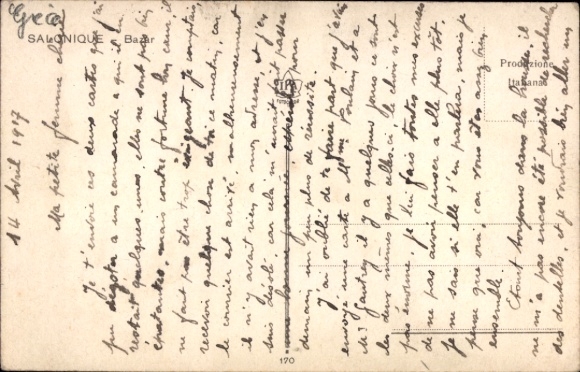 Grèce
SALONIQUE - Bazar
Produzione
Italiana
170
14 Avril 1917
Ma petite femme chérie
Je t'envoie ces deux cartes que j'ai
pu dégoter à un camarade à qui il en
restait quelques unes, elles ne sont pas très
épatantes, mais contre fortune bon cœur, il
ne faut pas être trop exigeant. Je comptais
recevoir quelque chose de toi ce matin, car
le courrier est arrivé, malheureusement
il n'y avait rien à mon adresse, et j'en
suis désolé, car cela m'aurait fait passer
une bonne journée, espérons pour
demain un peu plus de
J'ai oublié de te faire part que j'ai
envoyé une carte à Mme Poulain et à
Mr Gautrey il y a quelques jours ce sont
les deux mêmes que celles-ci, le choix n'est
pas énorme. Je lui fais toutes mes excuses
de ne pas avoir penser à elle plus tôt.
Je ne sais si elle t'en parlera, mais je
pense que oui, car vous êtes assez bien
ensemble.
Etant toujours dans la brousse, il
ne m'a pas encore été possible de rechercher
des dentelles, et je voudrais bien aller un